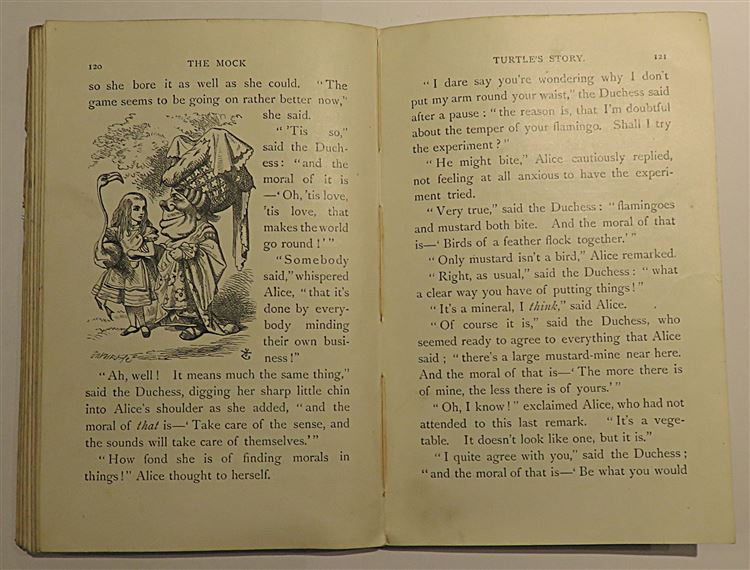 120
THE MOCK
so she bore it as well as she could. "The
game seems to be going on rather better now,"
she said.
"'Tis so,"
said the Duch-
ess: "and the
moral of it is
—'Oh, 'tis love,
'tis love, that
makes the world
go round!'"
"Somebody
said," whispered
Alice, "that it's
done by every-
body minding
their own busi-
ness!"
"Ah, well! It means much the same thing,"
said the Duchess, digging her sharp little chin
into Alice's shoulder as she added, "and the
moral of that is—'Take care of the sense, and
the sounds will take care of themselves.'"
"How fond she is of finding morals in
things!" Alice thought to herself.
TURTLE'S STORY.
121
"I dare say you're wondering why I don't
put my arm round your waist," the Duchess said
after a pause: "the reason is, that I'm doubtful
about the temper of your flamingo. Shall I try
the experiment?"
"He might bite," Alice cautiously replied,
not feeling at all anxious to have the experi-
ment tried.
"Very true," said the Duchess: "flamingoes
and mustard both bite. And the moral of that
is—'Birds of a feather flock together.'"
"Only mustard isn't a bird," Alice remarked.
"Right, as usual," said the Duchess: "what
a clear way you have of putting things!"
"It's a mineral, I think," said Alice.
"Of course it is," said the Duchess, who
seemed ready to agree to everything that Alice
said; "there's a large mustard-mine near here.
And the moral of that is—'The more there is
of mine, the less there is of yours.'"
"Oh, I know!" exclaimed Alice, who had not
attended to this last remark. "It's a vege-
table. It doesn't look like one, but it is."
"I quite agree with you," said the Duchess;
"and the moral of that is—'Be what you would